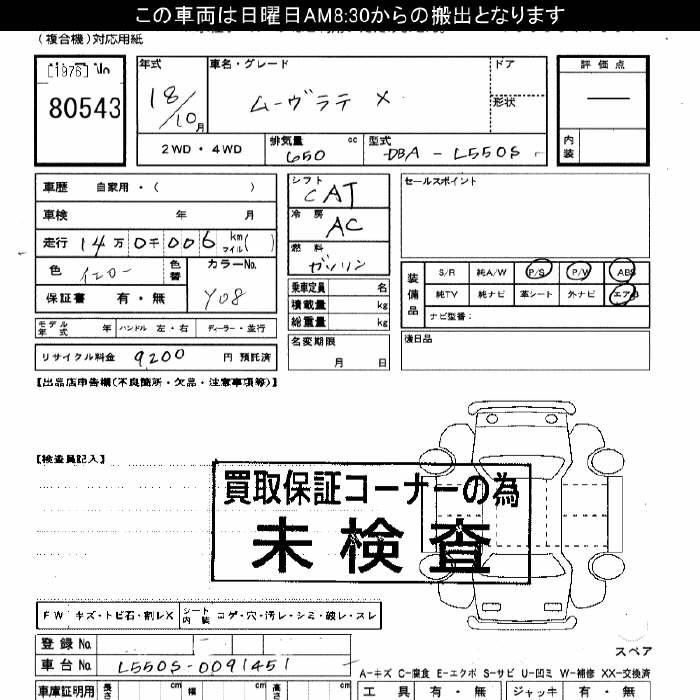 この車両は日曜日AM8:30からの搬出となります
(複合機)対応用紙
[1976] No
80543
年式
18/10月
車名・グレード
ムーヴラテ X
ドア
形状
評価点
内装
2WD・4WD
排気量 650 cc
型式 DBA-L550S
車歴 自家用・( )
車検 年 月
走行 14万0千006 km マイル( )
色 イエロー
色替
カラーNo. Y08
保証書 有・無
モデル年式 年
ハンドル 左・右
ディーラー・並行
リサイクル料金 9200 円 預託済
シフト CAT
冷房 AC
燃料 ガソリン
乗車定員 名
積載量 kg
総重量 kg
名変期限
月 日
セールスポイント
装備品
S/R 純A/W P/S P/W ABS
純TV 純ナビ 革シート 外ナビ エアB
ナビ型番:
後日品
【出品店申告欄(不良箇所・欠品・注意事項等)】
【検査員記入】
買取保証コーナーの為
未検査
FW キズ・トビ石・割レX
シート内装 コゲ・穴・汚レ・シミ・破レ・スレ
登録No.
車台No. L550S-0091451
スペア
A-キズ C-腐食 E-エクボ S-サビ U-凹ミ W-補修 XX-交換済
車庫証明用 長さ cm 幅 cm 高さ cm
工具 有・無 ジャッキ 有・無